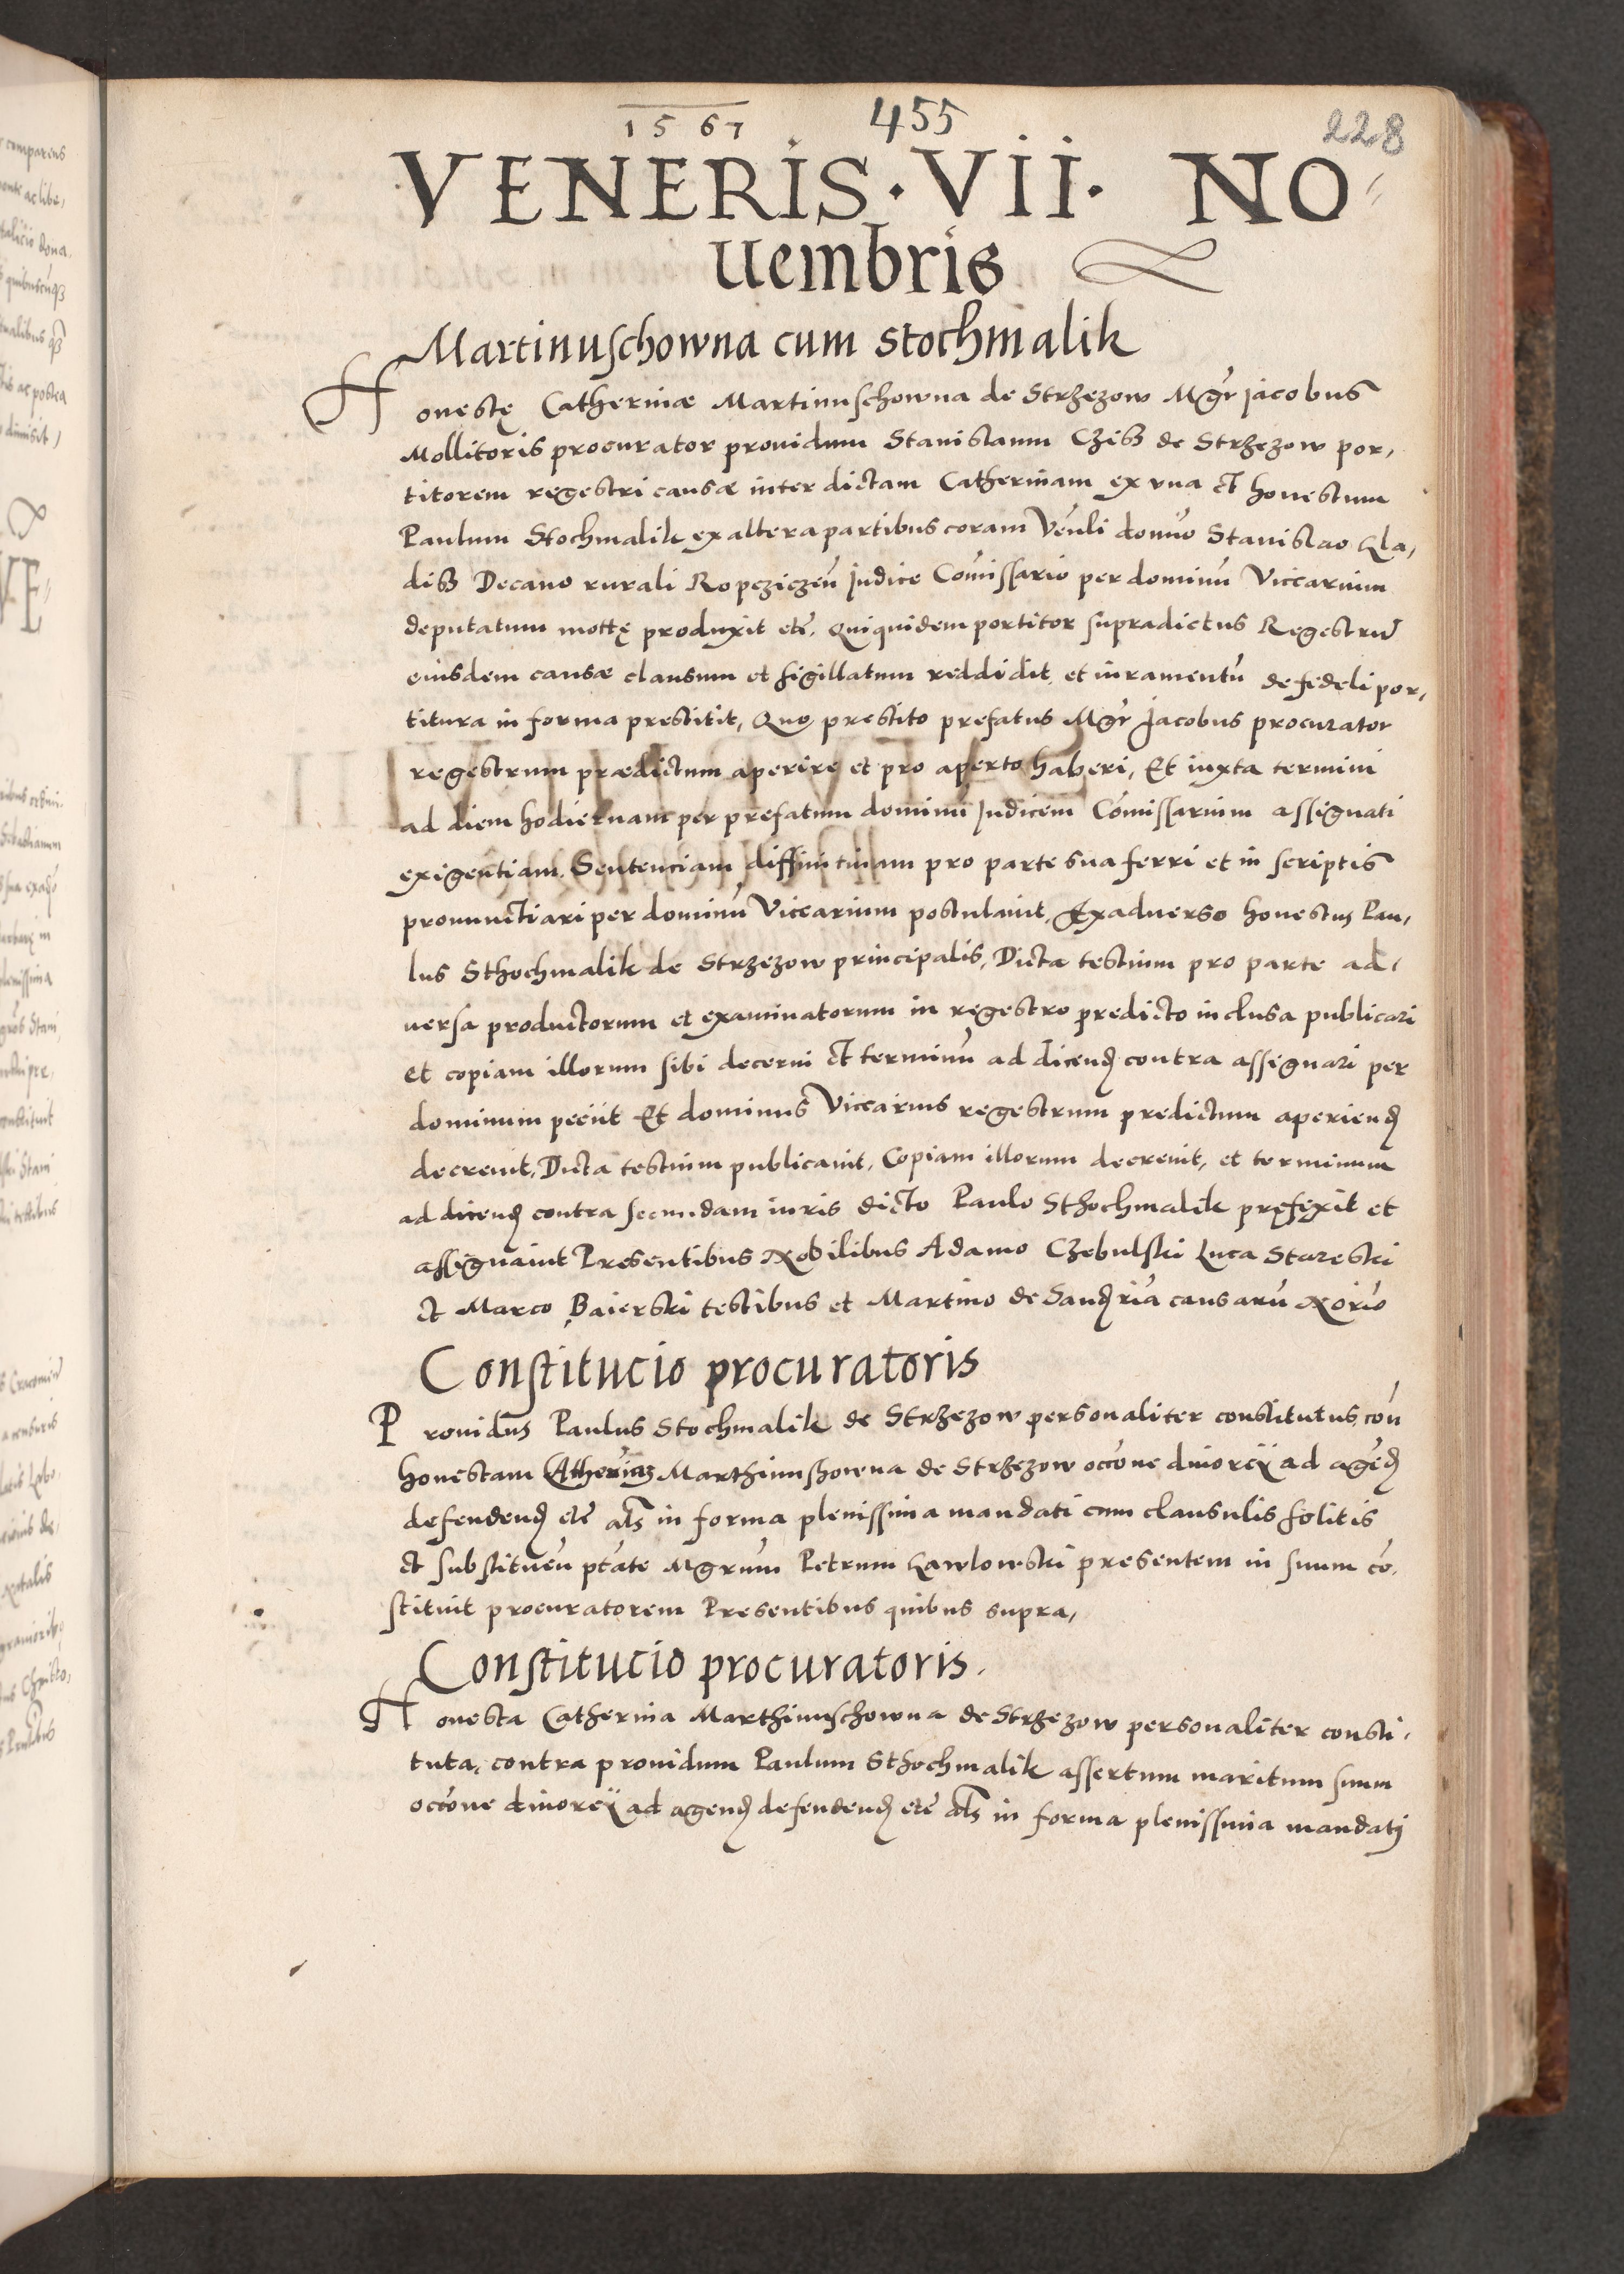 1567
455
228
VENERIS · VII · NO-
uembris
Martinuschowna cum Stochmalik
Honestę Catherinæ Martinuschowna de Strzezow Mgr Jacobus
Mollitoris procurator prouidum Stanislaum Czisz de Strzezow por,
titorem regestri causæ inter dictam Catherinam ex vna et honestum
Paulum Stochmalik ex altera partibus coram Venli domino Stanislao Kla,
disz Decano rurali Ropcziczeñ Judice Comissario per dominū Viccarium
deputatum mottę produxit etc. Quiquidem portitor supradictus Regestrū
eiusdem causæ clausum et sigillatum reddidit, et iuramentū de fedeli por,
titura in forma prestitit, Quo prestito prefatus Mgr Jacobus procurator
regestrum prædictum aperire et pro aperto haberi, Et iuxta termini
ad diem hodiernam per prefatum dominū Judicem Comissarium assignati
exigentiam, Sentenciam diffinitiuam pro parte sua ferri et in scriptis
pronunctiari per dominū Viccarium postulauit, Exaduerso honestus Pau,
lus Sthochmalik de Strzezow principalis, Dicta testium pro parte ad,
uersa productorum et examinatorum in regestro predicto inclusa publicari
et copiam illorum sibi decerni et terminū ad dicend contra assignari per
dominum peciit Et dominus Viccarius regestrum predictum aperiend
decreuit, Dicta testium publicauit, Copiam illorum decreuit, et terminum
ad dicend contra secundam iuris dicto Paulo Sthochmalik prefixit et
assignauit Presentibus Nobilibus Adamo Czebulski Luca Stareski
et Marco Baierski testibus et Martino de Sandriā causarū Norio
Constitucio procuratoris
Prouidus Paulus Stochmalik de Strzezow personaliter constitutus, con
honestam Marthinushowna de Strzezow occone diuorcÿ ad agend
defendend etc als in forma plenissima mandati cum clausulis solitis
et substitueñ ptate Mgrum Petrum Lawlowski presentem in suum co,
stituit procuratorem Presentibus quibus supra,
Constitucio procuratoris.
Honesta Catherina Marthinuschowna de Strzezow personaliter consti,
tuta, contra prouidum Paulum Sthochmalik assertum maritum suum
occone diuorcÿ ad agend defendend etc als in forma plenissima mandatj